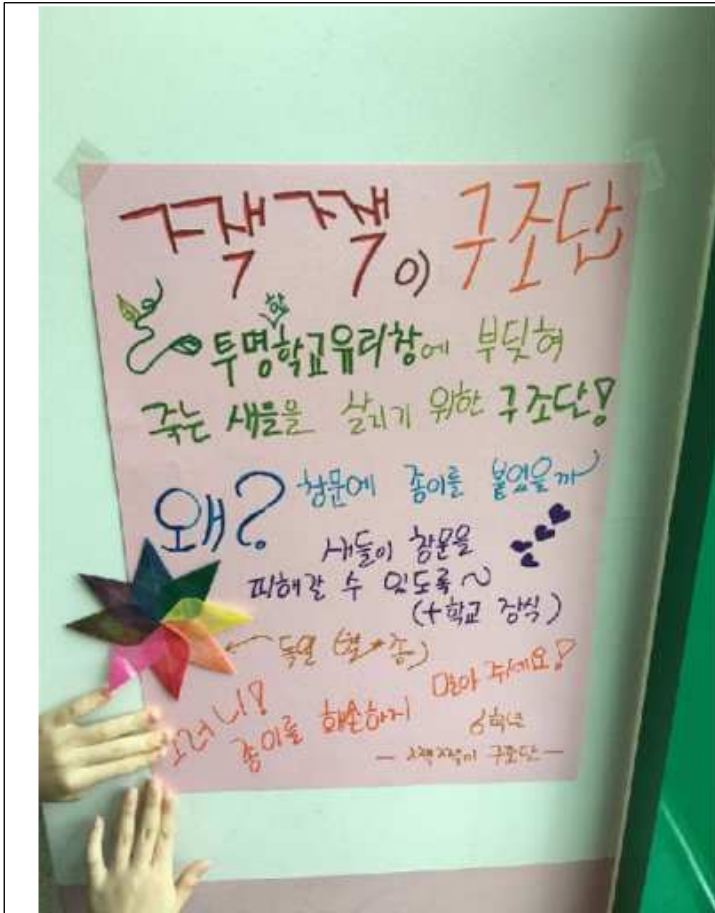 짹짹이 구조단
투명한 학교유리창에 부딪혀
죽는 새들을 살리기 위한 구조단!
왜? 창문에 종이를 붙였을까
새들이 창문을
피해갈 수 있도록~
(+학교 장식)
← 독일 (별종)
그러니!
종이를 훼손하지 말아 주세요!
6학년
- 짹짹이 구조단 -